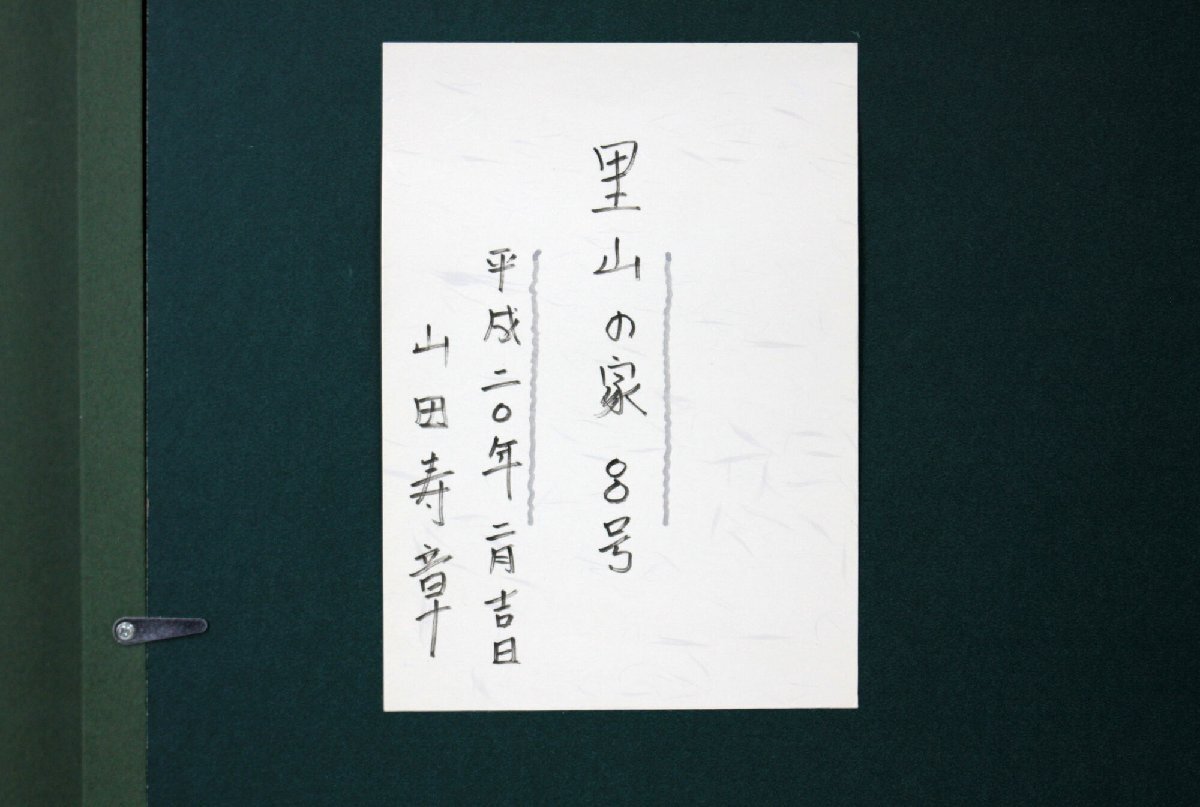 里山の家 8号
平成二〇年二月吉日
山田寿章